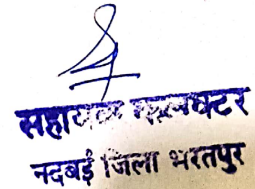 सहायक कलक्टर
नदबई जिला भरतपुर